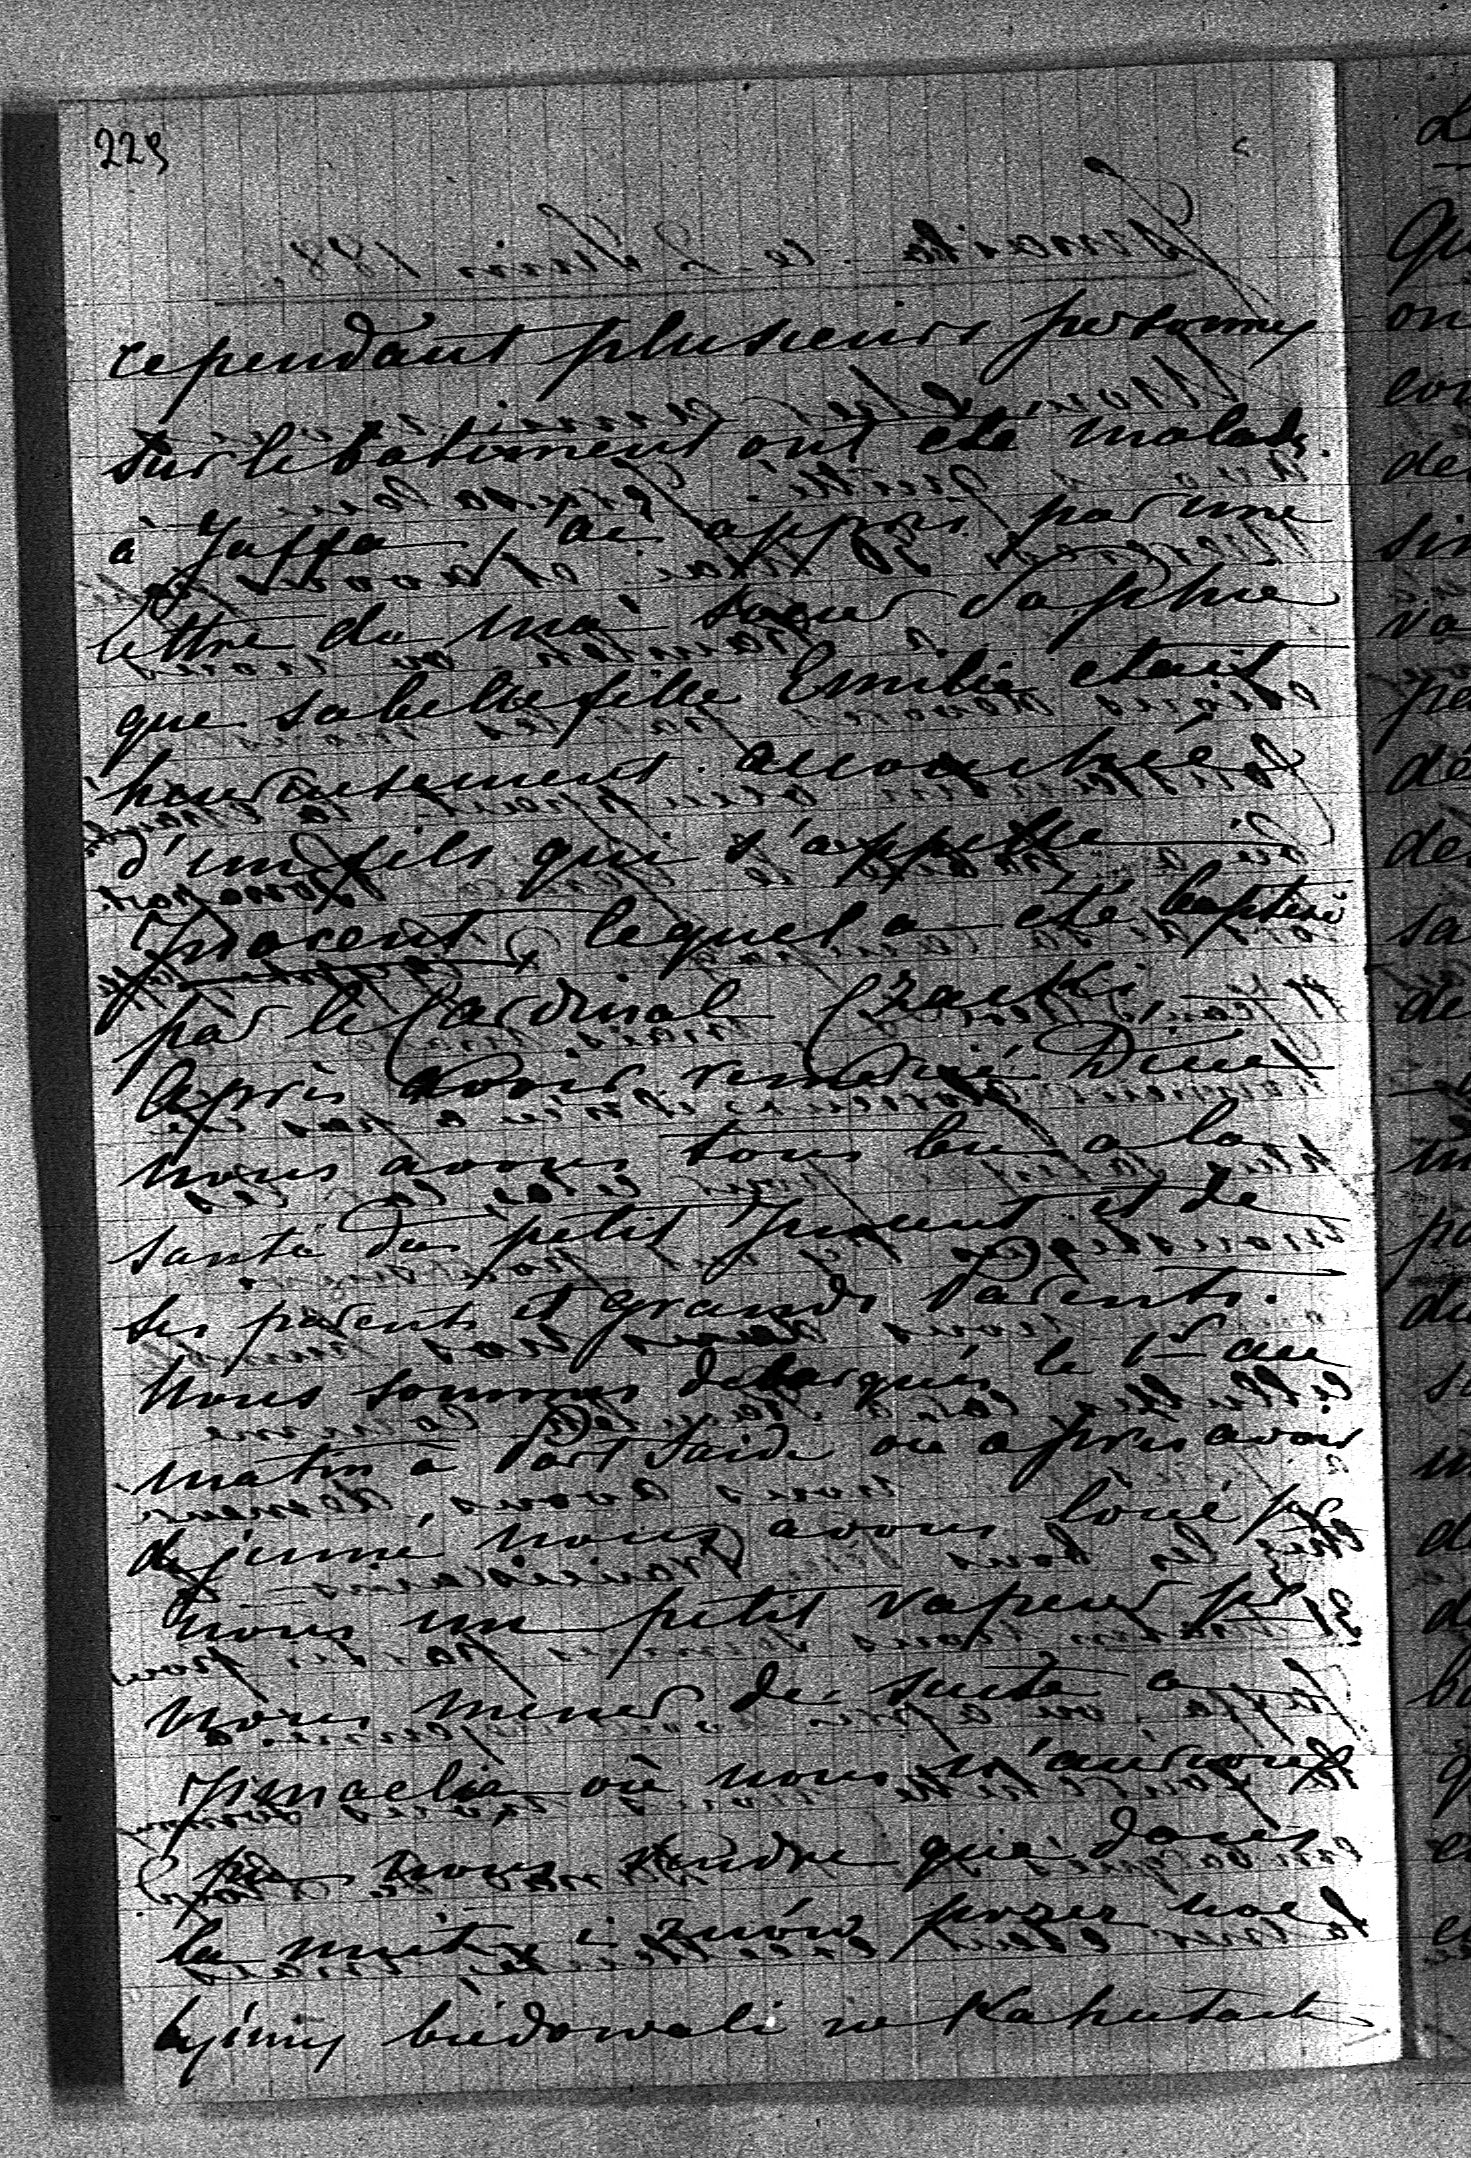 229
cependant plusieurs personnes
sur le batiment ont eté malades.
à Jaffa j'ai appris par une
lettre de ma soeur Sophie
que sa belle fille Emilie etait
heureusement accouchée
d'un fils qui s'appelle
Inocent lequel a été baptisé
par le Cardinal Czacki.
Après avoir remercié Dieu
nous avons tous bu a la
santé du petit Inocent et de
ses parents et grands Parents.
Nous sommes debarqués le 1er au
matin à Port Saide ou apres avoir
dejeuné, nous avons loué pr
nous un petit vapeur pr
nous mener de suite a
Ismaelia où nous n'aurions
pu nous rendre que dans
la nuit, i znów przez noc
byśmy biedowali w Kajutach